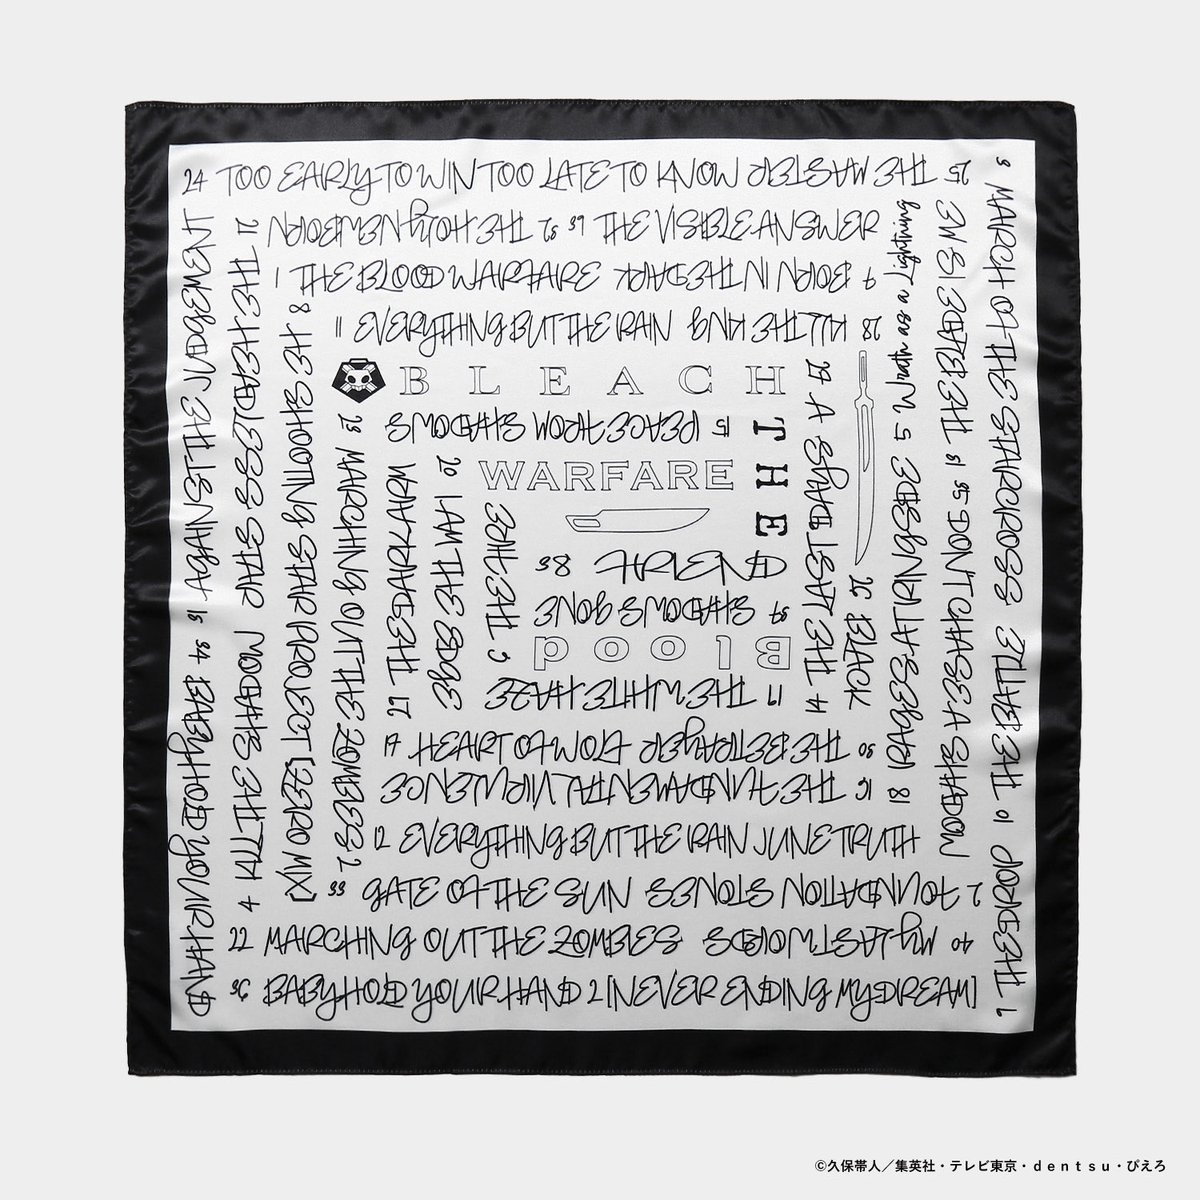 24 TOO EARLY TO WIN TOO LATE TO KNOW
25 THE MASTER
21 THE HEADLESS STAR
32 THE HOLY NEWBORN
39 THE VISIBLE ANSWER
1 THE BLOOD WARFARE
9 BORN IN THE DARK
11 EVERYTHING BUT THE RAIN
28 KILL THE KING
BLEACH
THE
WARFARE
Blood
15 PEACE FROM SHADOWS
29 A
14 THE LAST 9 DAYS
38 FRIEND
37 SHADOWS GONE
13 THE WHITE HAZE
3 MARCH OF THE STARCROSS
5 Wrath as a Lightning
18 RAGES AT RINGSIDE
35 DON'T CHASE A SHADOW
10 THE BATTLE
6 THE ORDER
26 BLACK
8 THE SHOOTING STAR PROJECT [ZERO MIX]
23 MARCHING OUT THE ZOMBIES 2
27 THE DARK ARM
20 I AM THE EDGE
31 AGAINST THE JUDGEMENT
34 BABY, HOLD YOUR HAND
4 KILL THE SHADOW
17 HEART OF WOLF
30 THE BETRAYER
16 THE FUNDAMENTAL VIRULENCE
12 EVERYTHING BUT THE RAIN JUNE TRUTH
33 GATE OF THE SUN
2 FOUNDATION STONES
22 MARCHING OUT THE ZOMBIES
40 MY LAST WORDS
36 BABY, HOLD YOUR HAND 2 [NEVER ENDING MY DREAM]
©久保帯人／集英社・テレビ東京・dentsu・ぴえろ